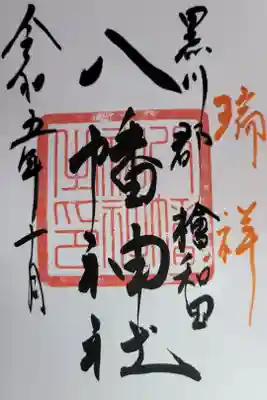 瑞祥
黒川郡檜和田
八幡神社
令和五年十一月